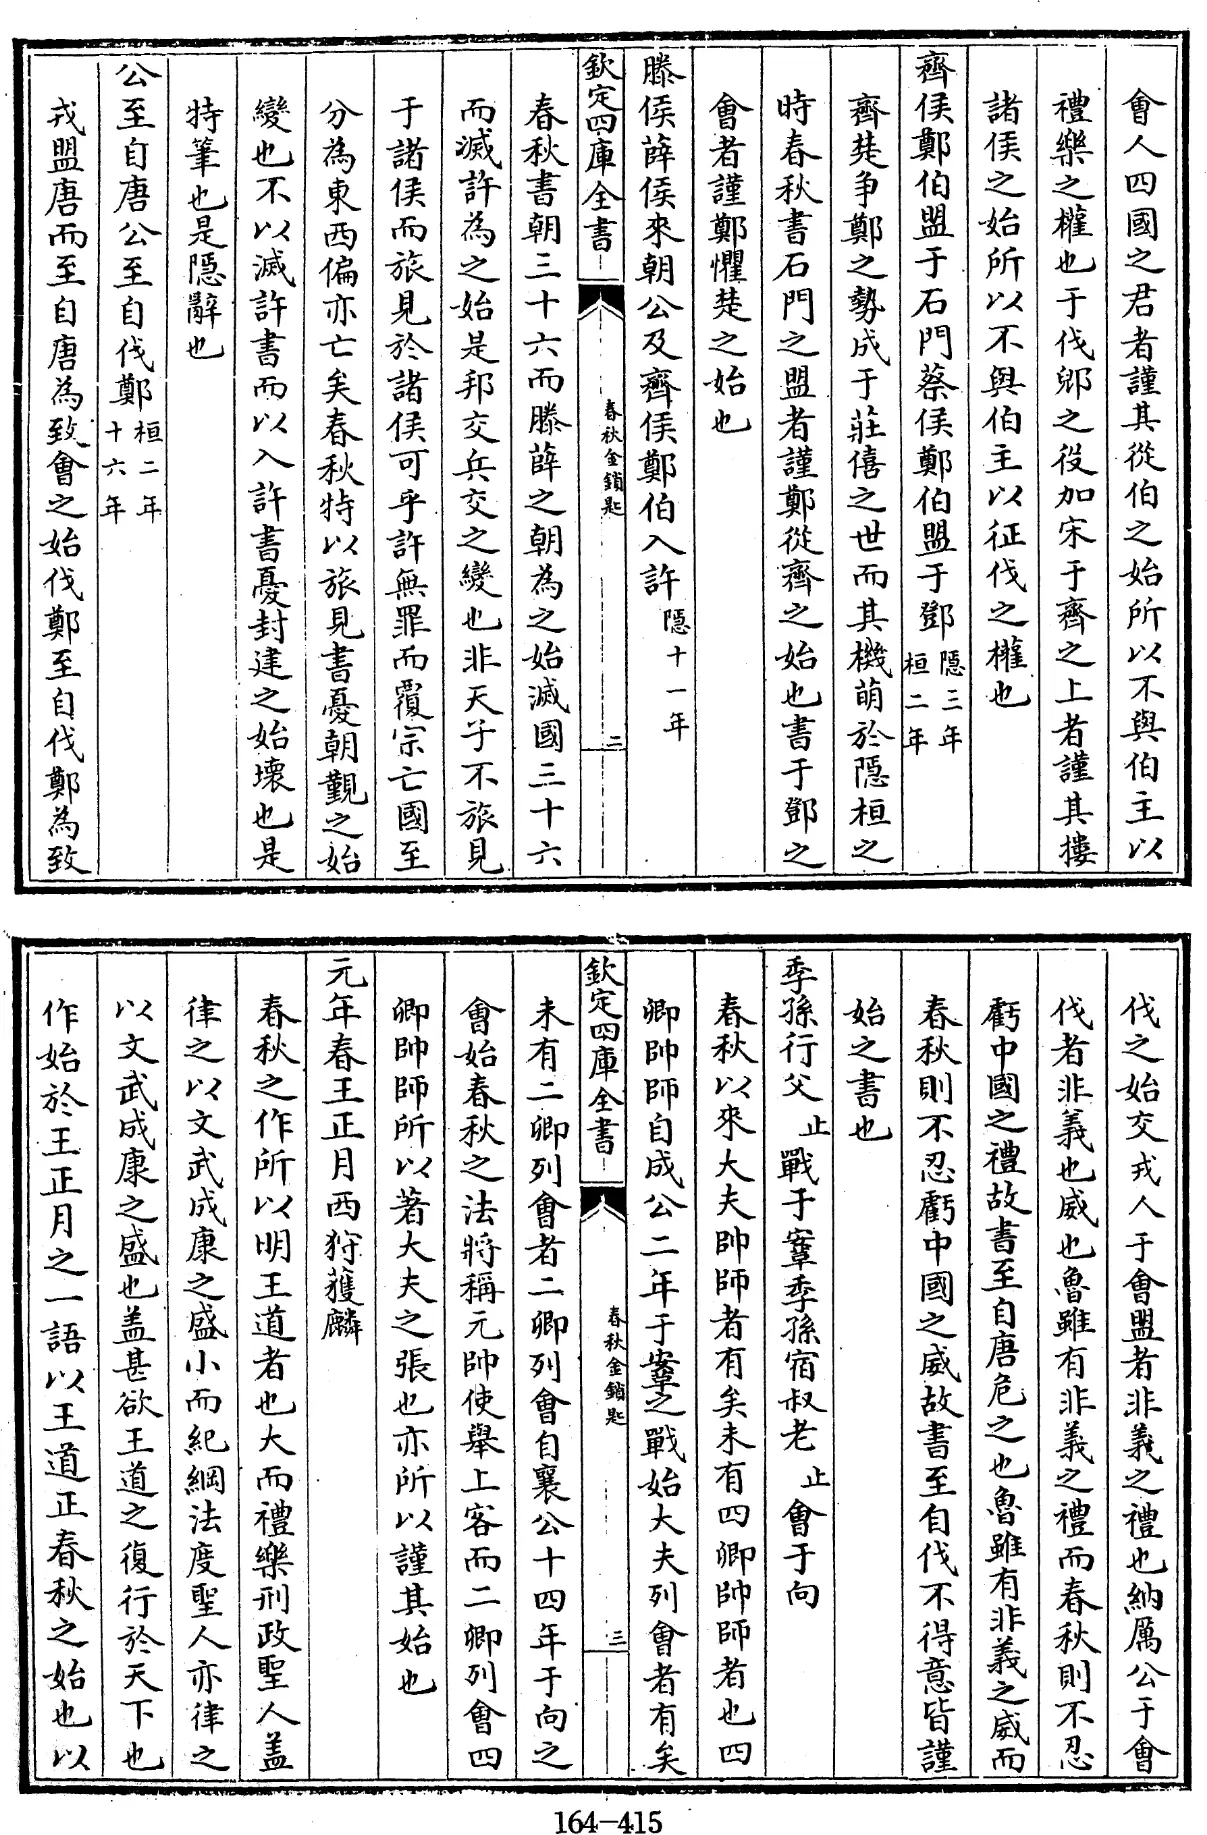 會人四國之君者謹其從伯之始所以不與伯主以
禮樂之權也于伐郳之役加宋于齊之上者謹其摟
諸侯之始所以不與伯主以征伐之權也
齊侯鄭伯盟于石門蔡侯鄭伯盟于鄧隱三年桓二年
齊楚争鄭之勢成于莊僖之世而其機萌於隱桓之
時春秋書石門之盟者謹鄭從齊之始也書于鄧之
會者謹鄭懼楚之始也
滕侯薛侯來朝公及齊侯鄭伯入許隱十一年
欽定四庫全書
春秋金鎖匙
二
春秋書朝三十六而滕薛之朝為之始滅國三十六
而滅許為之始是邦交兵交之變也非天子不旅見
于諸侯而旅見於諸侯可乎許無罪而覆宗亡國至
分為東西偏亦亡矣春秋特以旅見書憂朝覲之始
變也不以滅許書而以入許書憂封建之始壞也是
特筆也是隱辭也
公至自唐公至自伐鄭桓二年十六年
戎盟唐而至自唐為致會之始伐鄭至自伐鄭為致
伐之始交戎人于會盟者非義之禮也納厲公于會
伐者非義也威也魯雖有非義之禮而春秋則不忍
虧中國之禮故書至自唐危之也魯雖有非義之威而
春秋則不忍虧中國之威故書至自伐不得意皆謹
始之書也
季孫行父止戰于鞌季孫宿叔老止會于向
春秋以來大夫帥師者有矣未有四卿帥師者也四
卿帥師自成公二年于鞌之戰始大夫列會者有矣
欽定四庫全書
春秋金鎖匙
三
未有二卿列會者二卿列會自襄公十四年于向之
會始春秋之法將稱元帥使舉上客而二卿列會四
卿帥師所以著大夫之張也亦所以謹其始也
元年春王正月西狩獲麟
春秋之作所以明王道者也大而禮樂刑政聖人盖
律之以文武成康之盛小而紀綱法度聖人亦律之
以文武成康之盛也盖甚欲王道之復行於天下也
作始於王正月之一語以王道正春秋之始也以
164-415